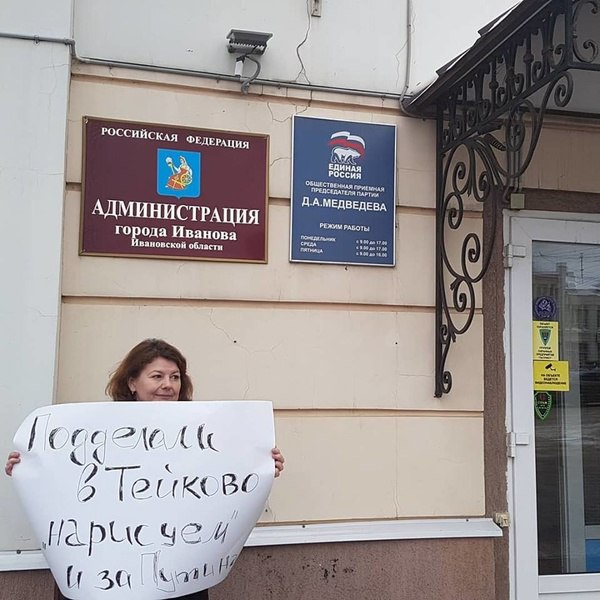 РОССИЙСКАЯ ФЕДЕРАЦИЯ
АДМИНИСТРАЦИЯ
города Иванова
Ивановской области
ЕДИНАЯ
РОССИЯ
ОБЩЕСТВЕННАЯ ПРИЕМНАЯ
ПРЕДСЕДАТЕЛЯ ПАРТИИ
Д.А.МЕДВЕДЕВА
РЕЖИМ РАБОТЫ
ПОНЕДЕЛЬНИК с 9.00 до 17.00
СРЕДА с 9.00 до 17.00
ПЯТНИЦА с 9.00 до 16.00
НА ОБЪЕКТЕ
ВЕДЕТСЯ
ВИДЕОНАБЛЮДЕНИЕ
Подделали
в Тейково
"нарисуем"
и за Путина